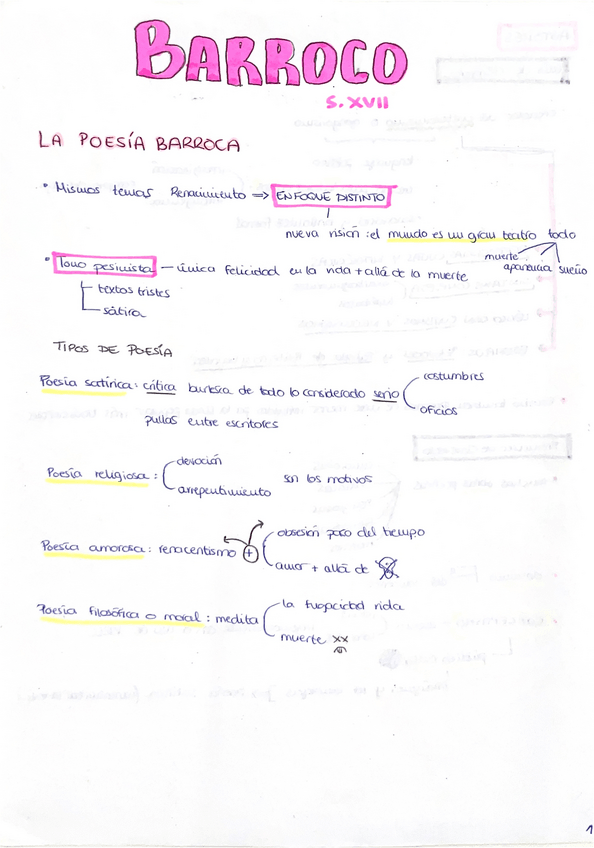 BARROCO
S. XVII
LA POESÍA BARROCA
• Mismos temas Renacimiento => ENFOQUE DISTINTO
nueva visión: el mundo es un gran teatro todo
muerte apariencia sueño
• Tono pesimista — única felicidad en la vida + allá de la muerte
textos tristes
sátira
TIPOS DE POESÍA
Poesía satírica: crítica burlesca de todo lo considerado serio
costumbres
oficios
pullas entre escritores
Poesía religiosa: devoción
arrepentimiento
son los motivos
Poesía amorosa: renacentismo +
obsesión paso del tiempo
amor + allá de
Poesía filosófica o moral: medita
la fugacidad vida
muerte xx
1